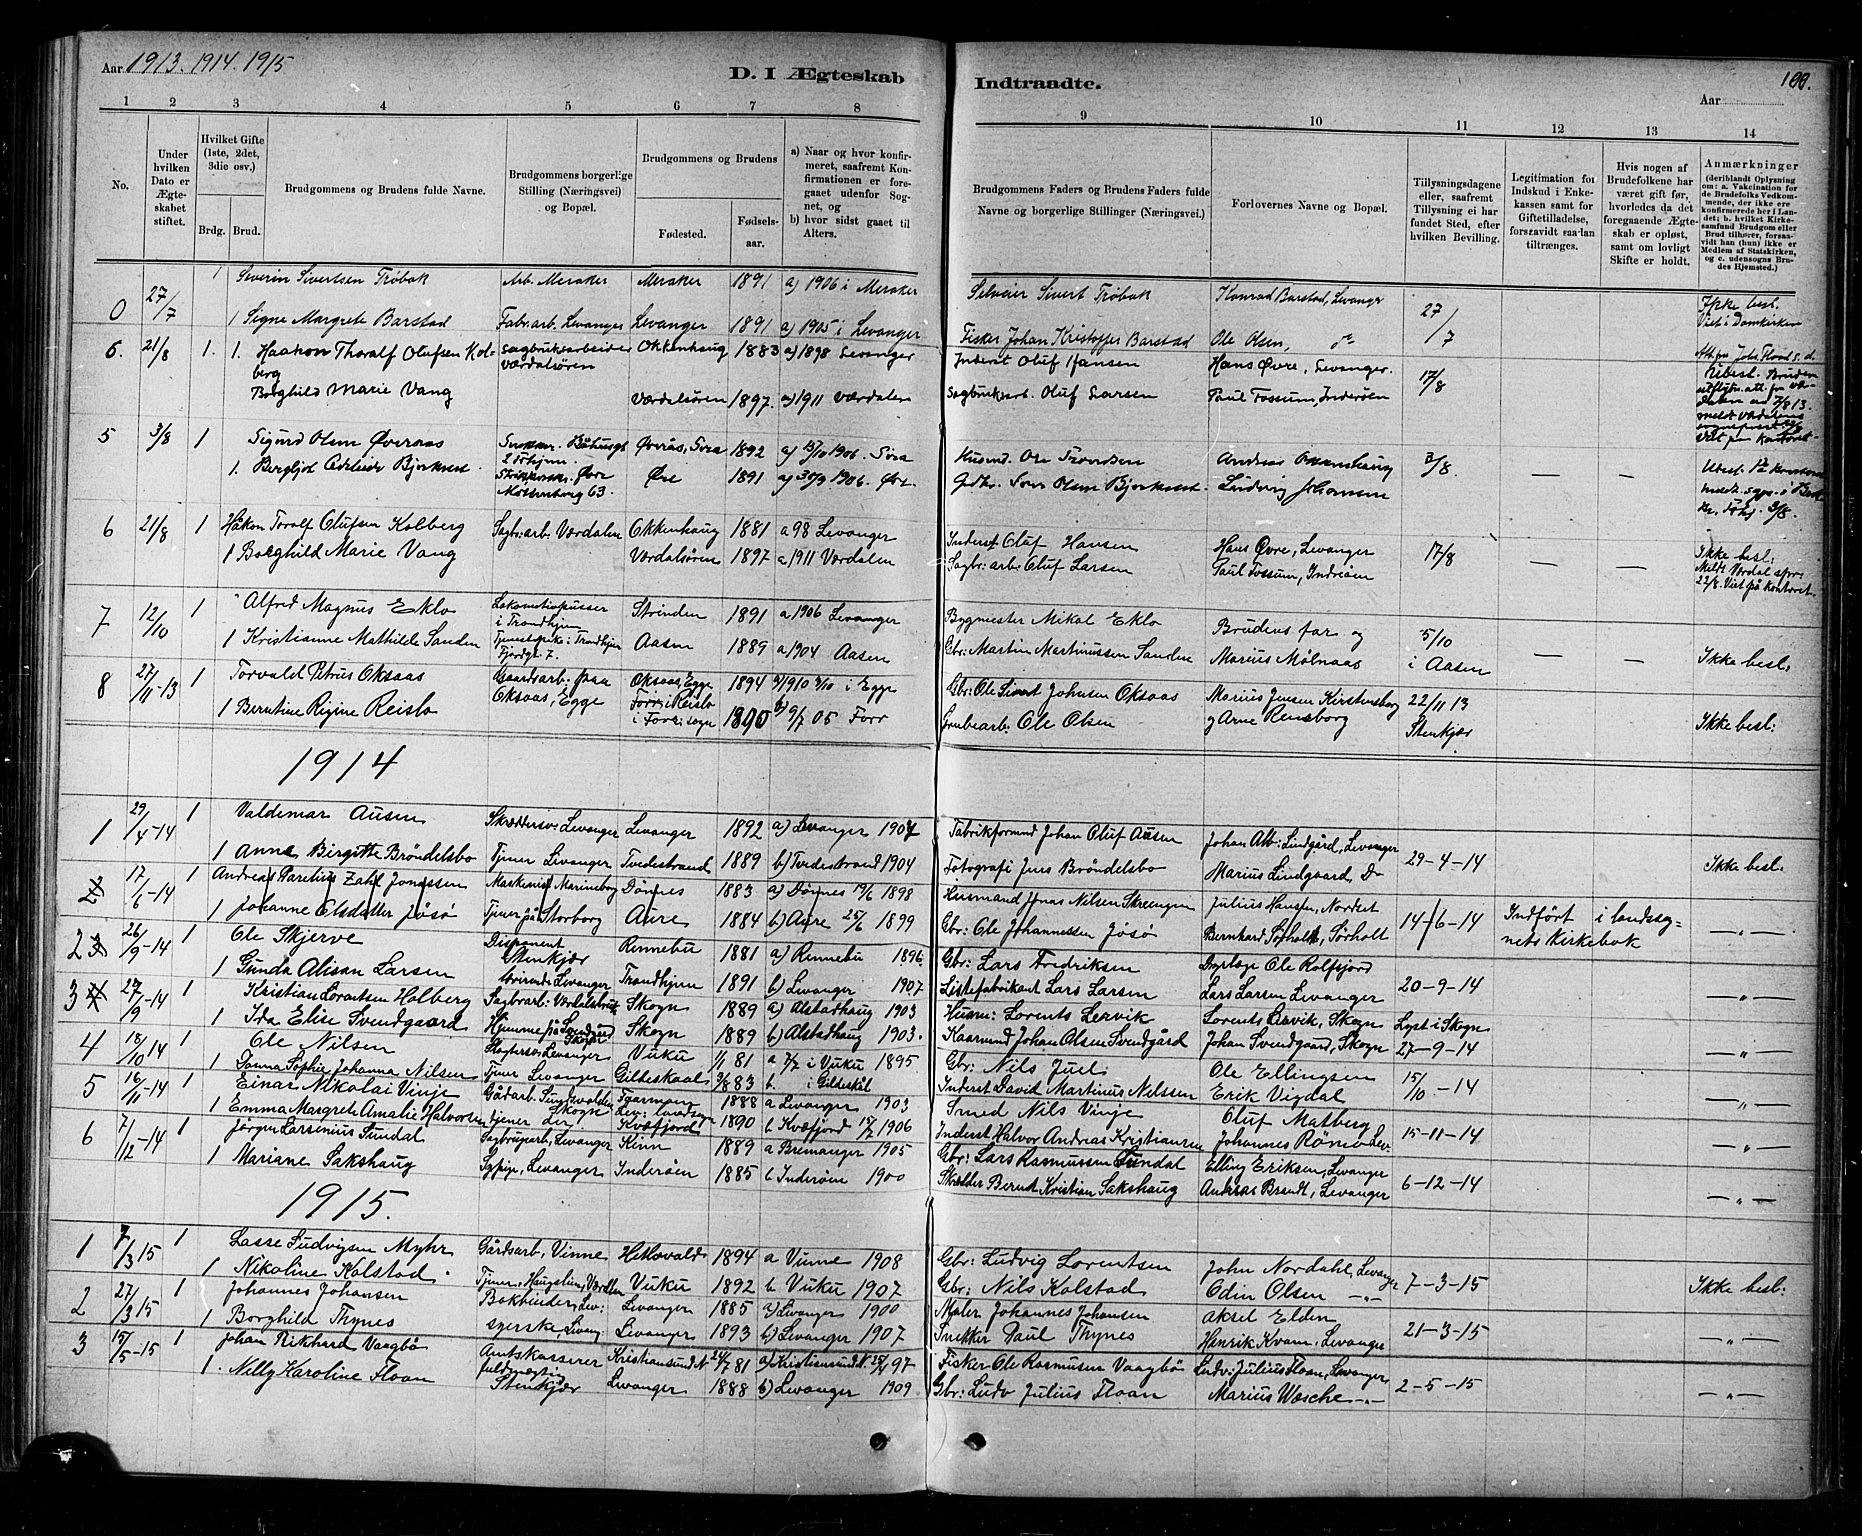 Aar 1913. 1914. 1915
D. I Ægteskab Indtraadte.
100.
Aar
1 2 3 4 5 6 7 8 9 10 11 12 13 14
No.
Under hvilken Dato er Ægteskabet stiftet.
Hvilket Gifte (1ste, 2det, 3die osv.)
Brdg. Brud.
Brudgommens og Brudens fulde Navne.
Brudgommens borgerlige Stilling (Næringsvei) og Bopæl.
Brudgommens og Brudens
Fødested.
Fødselsaar.
a) Naar og hvor konfirmeret, saafremt Konfirmationen er foregaaet udenfor Sognet, og
b) hvor sidst gaaet til Alters.
Brudgommens Faders og Brudens Faders fulde Navne og borgerlige Stillinger (Næringsvei.)
Forlovernes Navne og Bopæl.
Tillysningsdagene eller, saafremt Tillysning ei har fundet Sted, efter hvilken Bevilling.
Legitimation for Indskud i Enkekassen samt for Giftetilladelse, forsaavidt saadan tiltrænges.
Hvis nogen af Brudefolkene har været gift før, hvorledes da det foregaaende Ægteskab er opløst, samt om lovligt Skifte er holdt.
Anmærkninger (deriblandt Oplysning om: a. Vakcination for de Brudefolks Vedkommende, der ikke ere konfirmerede her i Landet; b. hvilket Kirkesamfund Brudgom eller Brud tilhører, forsaavidt han (hun) ikke er Medlem af Statskirken, og c. udensogns Brudes Hjemsted.)
0 27/7 1 Severin Sivertsen Trøbak Arb. Meraker Meraker 1891 a) 1906 i Meraker Selveier Sivert Trøbak Konrad Barstad, Levanger 27/7 Ikke besl. Viet i Domkirken
1 Signe Margrete Barstad Fabr.arb. Levanger Levanger 1891 a) 1905 i Levanger Fisker Johan Kristoffer Barstad Ole Olsen, do
6. 21/8 1. 1. Haakon Thoralf Olufsen Kolberg Sagbruksarbeider Værdalsören Okkenhaug 1883 a) 1898 Levanger Inderst Oluf Hansen Hans Øvre, Levanger. 17/8
Borghild Marie Vang Værdalsören 1897. a) 1911 Værdalen Sagbruksarb. Oluf Larsen Paul Fossum, Inderøen
5 3/8 1 Sigurd Olsen Øveraas Øveraas, 1892 1906. Husmd. Ole Trondsen Andreas Okkenhaug 3/8. — —
1. Bergljot Bjorknest. Øre 1891 a) 30/9 1906. Øre Gdbr. Olsen Bjorknest. Ludvig Johansen
6 21/8 1 Håkon Toralf Olufsen Kolberg Sagbr: arb. Værdalen Okkenhaug 1881 a 98 Levanger Inderst Oluf Hansen Hans Øvre, Levanger 17/8 — — Ikke besl: Meldt Værdal spr. 22/8. Viet på kontoret.
1 Borghild Marie Vang Værdalsören 1897 a 1911 Værdalen Sagbr: arb: Oluf Larsen Paul Fossum, Inderöen
7 12/10 1 Alfred Magnus Eklo Lokomotivpusser i Trondhjem Strinden 1891 a 1906 Levanger Bygmester Mikal Eklo Brudens far og 5/10 i Aasen — — Ikke besl:
1 Kristianne Mathilde Sanden Tjenestepike i Trondhjem Fjordgt. 7. Aasen 1889 a 1904 Aasen Gbr: Martin Martinussen Sanden Marius Mølnaas
8 27/11-13 1 Torvald Petrus Oksaas Gaardsarb. paa Oksaas, Egge Oksaas, Egge 1894 3/10 i Egge Gbr: Ole Sivert Johnsen Oksaas Marius Jensen Kirstensborg 22/11 13 Stenkjær Ikke besl:
1 Berntine Rigine Reislo Forr: i Reislo i Forr: sogn 1890 b) 9/7 05 Forr Grubearb: Ole Olsen og Arne Rensborg
1914
1 29/4-14 1 Valdemar Ausen Skræddersv: Levanger Levanger 1892 a) Levanger 1907 Fabrikformnd Johan Oluf Ausen Johan Alb: Lindgård, Levanger 29-4-14 Ikke besl:
1 Anna Birgitte Bröndelsbo Tjener Levanger Tvedestrand 1889 b) Tvedestrand 1904 Fotografi Jens Bröndelsbo Marius Lindgaard, Do
2 17/6-14 Andreas Paretius Zahl Jonassen Maskenist Marineborg Dönnes 1883 a) Dönnes 19/6 1898 Husmand Jonas Nilsen Julius Hansen, Nordset 14-6-14 Indfört i landssognets kirkebok —"—
1 Johanne Olsdatter Jösö Tjener på Storborg Aure 1884 b) Aure 25/6 1899 Gbr: Ole Johannessen Jösö Bernhard Sørholt, Sørholt
2 3 26/9-14 1 Ole Skjerve Disponent Stenkjær Rennebu 1881 a) Rennebu 1896. Gbr: Lars Fredriksen Ole Rolfsjord 20-9-14 —"—
1 Gunda Alisan Larsen Levanger Trondhjem 1891 b) Levanger 1907 Listefabrikant Lars Larsen Lars Larsen Levanger
3 4 27/9-14 1 Kristian Lorentsen Holberg Sagbrarb. Værdalsbruk Skogn 1889 a) Alstadhaug 1903 Husm: Lorents Lervik Lorents Lervik, Skogn Lyst i Skogn
1 Ida Elise Svendgaard Hjemme på Svendgård Skogn Skogn 1889 b) Alstadhaug 1903. Kaarmnd Johan Olsen Svendgård Johan Svendgaard, Skogn 27-9-14 —"—
4 18/10 14 1 Ole Nilsen Slagtersv: Levanger Vuku 1/1 81 a 7/7 i Vuku 1895 Gbr: Nils Juul Ole Ellingsen 15/10-14 —"—
1 Donna Sophie Johanna Nilsen Tjener Levanger Gildeskaal 3/8 83 b. i Gildeskål Inderst David Martinus Nilssen Erik Vigdal
5 16/11-14 1 Einar Nikolai Vinje Gårdarb. Skogn Lev: landsogn 1888 a Levanger 1903 Smed Nils Vinje Oluf Matberg 15-11-14 —"—
1 Emma Margrete Amalie Halvorsen tjener der Kvæfjord 1890 b Kvæfjord 1906 Inderst Halvor Andreas Kristiansen Johannes Rømo Lev.
6 7/12-14 1 Jörgen Larsenius Sundal Sagbrugarb, Levanger Kinn 1889 a Bremanger 1905 Gbr: Lars Rasmussen Sundal Elling Eriksen, Levanger 6-12-14 —"—
1 Mariane Sakshaug Sypige, Levanger Inderöen 1885 b Inderöen 1900 Skrædder Bernt Kristian Sakshaug Andreas Brandt, Levanger
1915.
1 7/3 15 1 Lasse Ludvigsen Myhr Gårdsarb, Vinne 1894 a Vinne 1908 Gbr: Ludvig Lorentsen John Nordahl, Levanger 7-3-15 Ikke besl:
1 Nikoline Kolstad. Tjener, Haugslien, Værdalen Vuku 1892 b Vuku 1907 Gbr: Nils Kolstad Odin Olsen —"—
2 27/3 15 1 Johannes Johansen Bokbinder, Lev: Levanger 1885 a) Levanger 1900 Maler Johannes Johansen Aksel Elden 21-3-15 —"—
1 Borghild Thynes syerske, Leveng. Levanger 1893 b) Levanger 1907 Snekker Paul Thynes Henrik Kvam, Levanger
3 15/5-15 1 Johan Rikhard Vaagbö Amtskasserer fuldmægtig Stenkjær Kristiansund N 24/7 81 a) Kristiansund N. 97 Fisker Ole Rasmusen Vaagbö Ludv: Julius Floan, Levanger 2-5-15 —"—
1. Nilly Karoline Floan Levanger 1888 b) Levanger 1909 Gbr: Ludv Julius Floan Marius Wæsche —"—